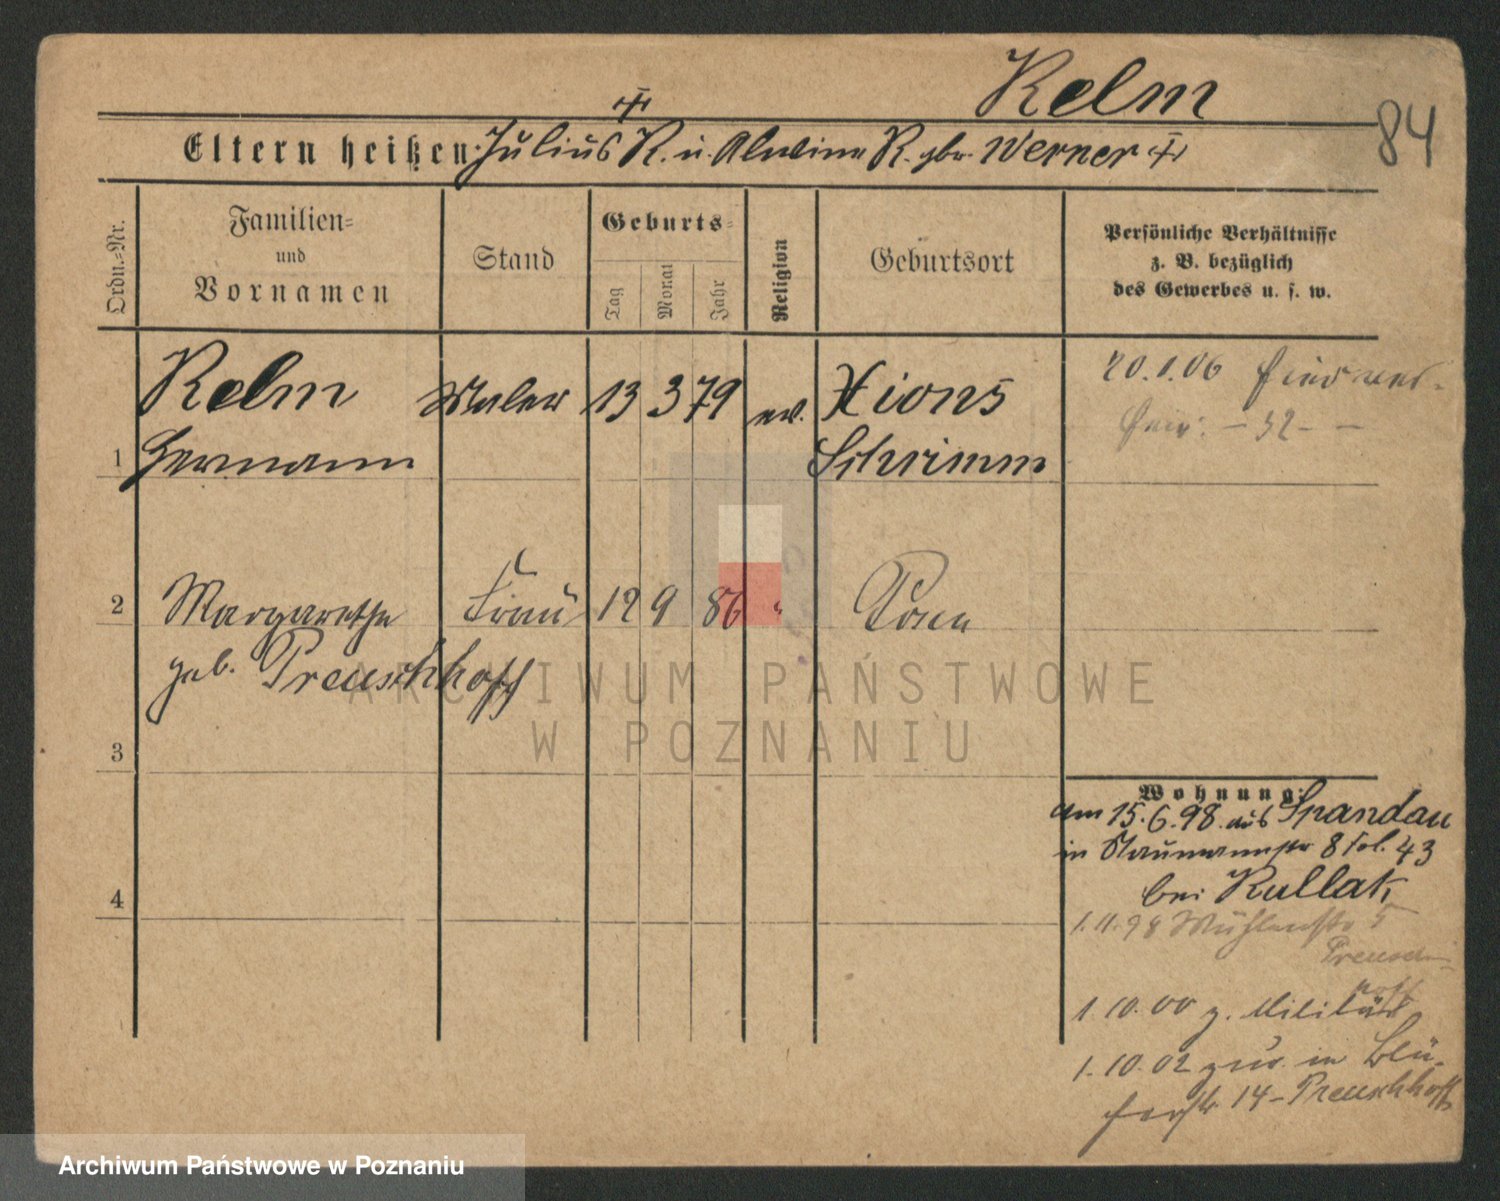 Relm
84
Eltern heißen: Julius R. u. Alwine R. gb. Werner
Ordn.-Nr.
Familien=
und
Vornamen
Stand
Geburts=
Tag
Monat
Jahr
Religion
Geburtsort
Persönliche Verhältnisse
z. B. bezüglich
des Gewerbes u. s. w.
1
Relm
Hermann
Maler
13 3 79
ev.
Xions
Schrimm
20.1.06 hier ver-
heir. – 32 –
2
Margarethe
geb. Preuschhoff
Frau
12 9 86
"
Posen
3
4
Wohnung:
am 15.6.98 aus Spandau
in 8 43
bei Kullak
1.11.98 Mühlenstr 5
Preusch-
hoff
1.10.00 z. Militär
1.10.02 zur. in Blü-
cherstr 14 – Preuschhoff
ARCHIWUM PAŃSTWOWE
W POZNANIU
Archiwum Państwowe w Poznaniu